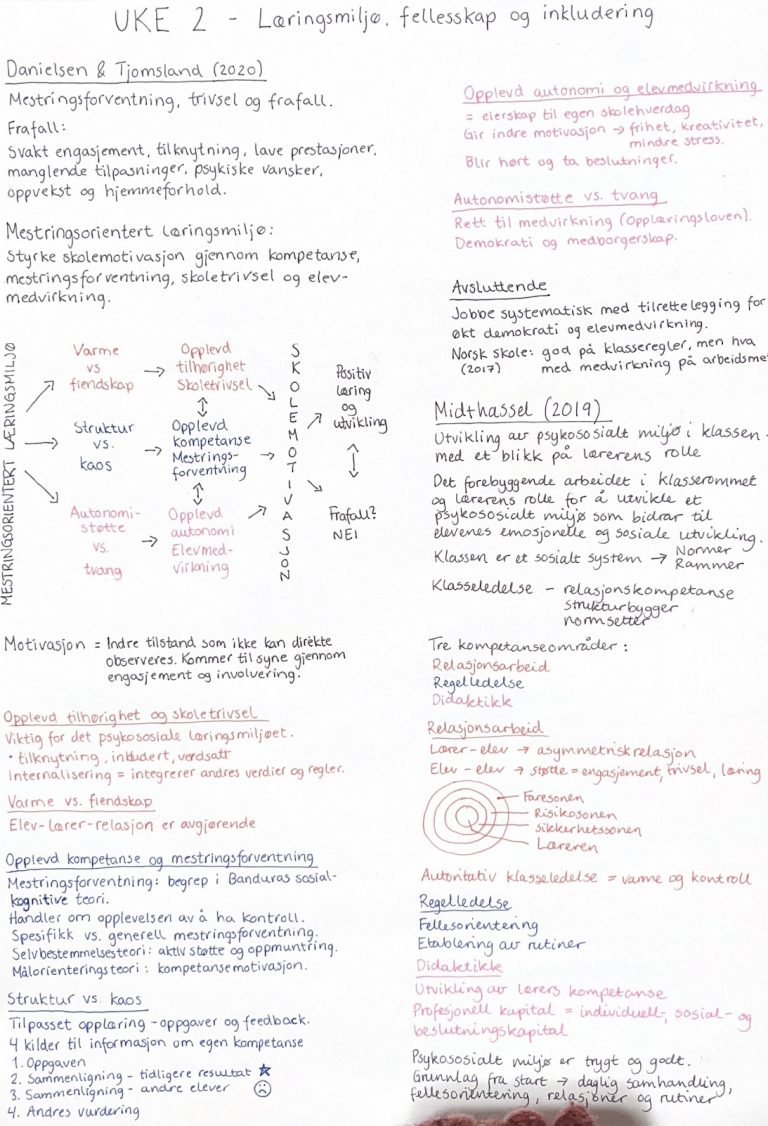 UKE 2 - Læringsmiljø, fellesskap og inkludering
Danielsen & Tjomsland (2020)
Mestringsforventning, trivsel og frafall.
Frafall:
Svakt engasjement, tilknytning, lave prestasjoner,
manglende tilpasninger, psykiske vansker,
oppvekst og hjemmeforhold.
Mestringsorientert læringsmiljø:
Styrke skolemotivasjon gjennom kompetanse,
mestringsforventning, skoletrivsel og elev-
medvirkning.
MESTRINGSORIENTERT LÆRINGSMILJØ
Varme
vs
fiendskap
→
Opplevd
tilhørighet
Skoletrivsel
Struktur
vs.
kaos
→
Opplevd
kompetanse
Mestrings-
forventning
Autonomi-
støtte
vs.
tvang
→
Opplevd
autonomi
Elevmed-
virkning
SKOLEMOTIVASJON
Positiv
læring
og
utvikling
Frafall?
NEI
Motivasjon = Indre tilstand som ikke kan direkte
observeres. Kommer til syne gjennom
engasjement og involvering.
Opplevd tilhørighet og skoletrivsel
Viktig for det psykososiale læringsmiljøet.
• tilknytning, inkludert, verdsatt
Internalisering = integrerer andres verdier og regler.
Varme vs. fiendskap
Elev-lærer-relasjon er avgjørende
Opplevd kompetanse og mestringsforventning
Mestringsforventning: begrep i Banduras sosial-
kognitive teori.
Handler om opplevelsen av å ha kontroll.
Spesifikk vs. generell mestringsforventning.
Selvbestemmelsesteori: aktiv støtte og oppmuntring.
Målorienteringsteori: kompetansemotivasjon.
Struktur vs. kaos
Tilpasset opplæring - oppgaver og feedback.
4 kilder til informasjon om egen kompetanse
1. Oppgaven
2. Sammenligning - tidligere resultat
3. Sammenligning - andre elever
4. Andres vurdering
Opplevd autonomi og elevmedvirkning
= eierskap til egen skolehverdag
Gir indre motivasjon → frihet, kreativitet,
mindre stress.
Blir hørt og ta beslutninger.
Autonomistøtte vs. tvang
Rett til medvirkning (Opplæringsloven).
Demokrati og medborgerskap.
Avsluttende
Jobbe systematisk med tilrettelegging for
økt demokrati og elevmedvirkning.
Norsk skole: god på klasseregler, men hva
(2017) med medvirkning på arbeidsme
Midthassel (2019)
Utvikling av psykososialt miljø i klassen -
med et blikk på lærerens rolle
Det forebyggende arbeidet i klasserommet
og lærerens rolle for å utvikle et
psykososialt miljø som bidrar til
elevenes emosjonelle og sosiale utvikling.
Klassen er et sosialt system → Normer
Rammer
Klasseledelse - relasjonskompetanse
strukturbygger
normsetter
Tre kompetanseområder:
Relasjonsarbeid
Regelledelse
Didaktikk
Relasjonsarbeid
Lærer-elev → asymmetrisk relasjon
Elev-elev → støtte = engasjement, trivsel, læring
Faresonen
Risikosonen
Sikkerhetssonen
Læreren
Autoritativ klasseledelse = varme og kontroll
Regelledelse
Fellesorientering
Etablering av rutiner
Didaktikk
Utvikling av lærers kompetanse
Profesjonell kapital = individuell-, sosial- og
beslutningskapital
Psykososialt miljø er trygt og godt.
Grunnlag fra start → daglig samhandling,
fellesorientering, relasjoner og rutiner